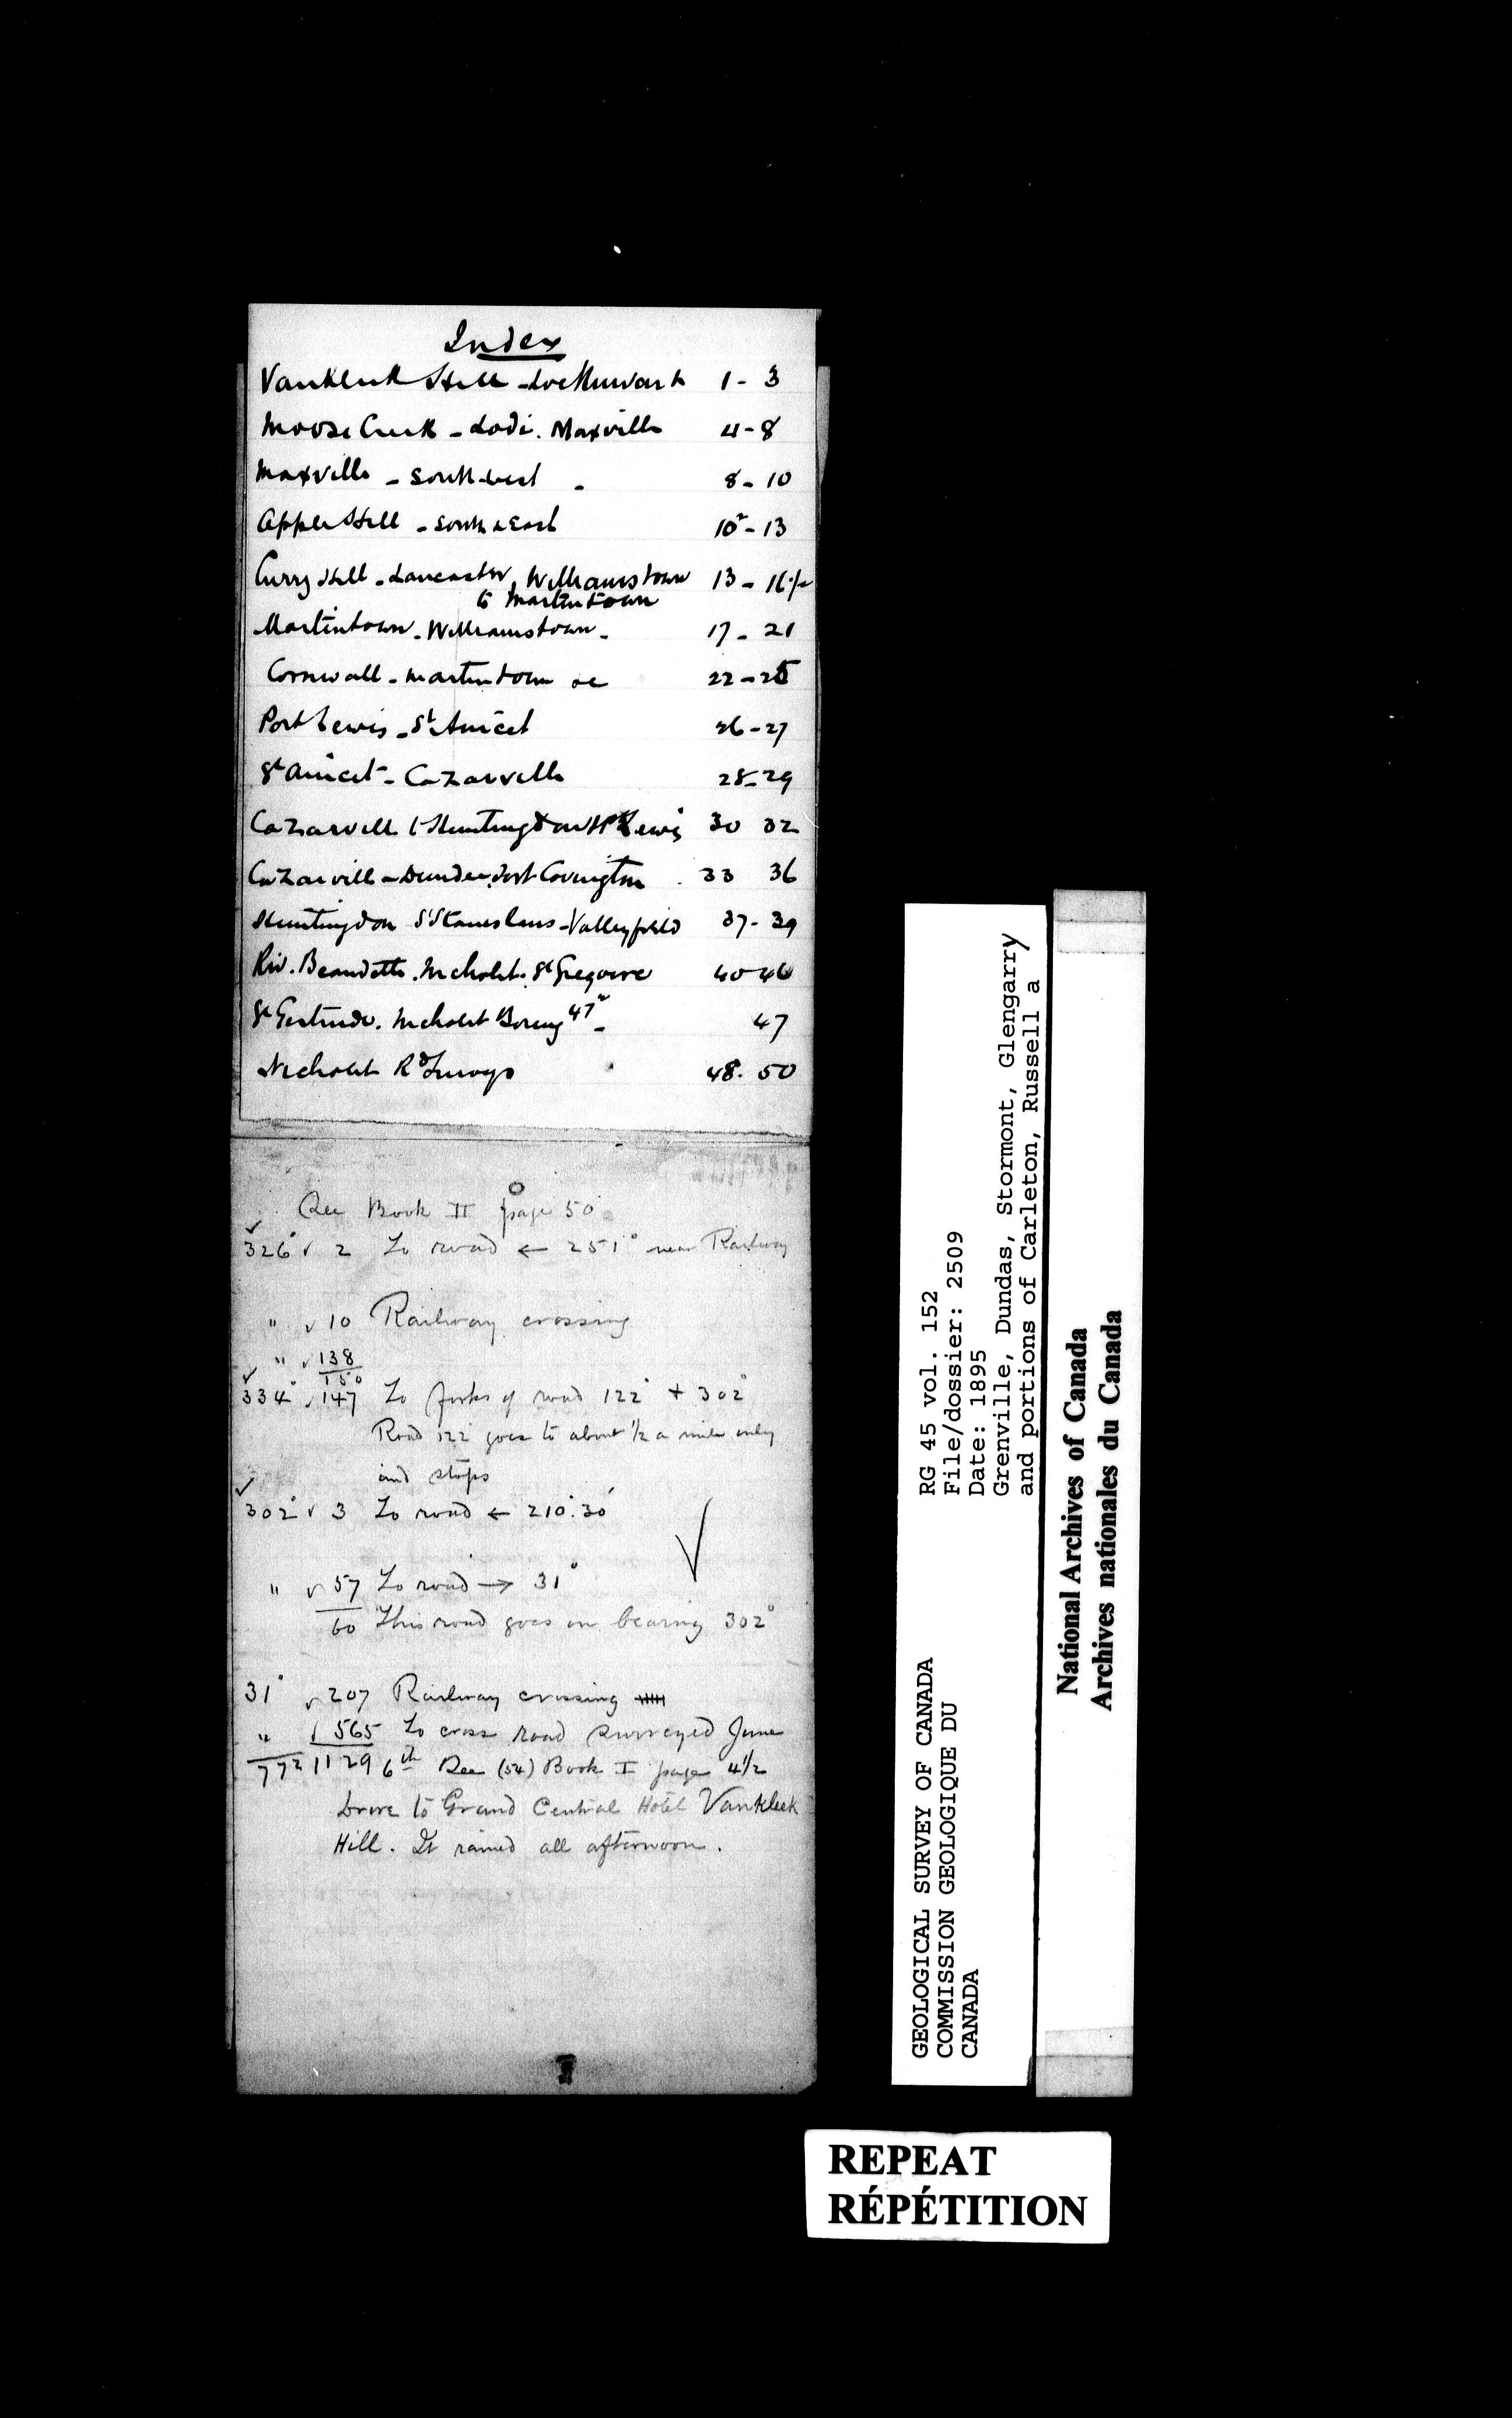 Index
Vankleek Hill - Lochinvar &c 1 - 3
Moose Creek - Lodi. Maxville 4 - 8
Maxville - South-west - 8 - 10
Apple Hill - South & East 10² - 13
Curry Hill - Lancaster, Williamstown 13 - 16½
to Martintown
Martintown - Williamstown - 17 - 21
Cornwall - Martintown &c 22 - 25
Port Lewis - St Anicet 26 - 27
St Anicet - Cazaville 28 - 29
Cazaville to Huntingdon Pt Lewis 30 32
Cazaville - Dundee, Fort Covington 33 36
Huntingdon St Stanislaus - Valleyfield 37 - 39
Riv. Beaudette. Nicholet. St Gregoire 40-46
St Gertrude. Nicholet Boring 47² - 47
Nicholet Rd Surveys 48. 50
0
See Book II page 50
326° 2 To road ← 251° near Railway
" 10 Railway crossing
" 138
150
334° 147 To forks of road 122° + 302°
Road 122° goes to about ½ a mile only
and stops
302° 3 To road ← 210°.30'
" 57 To road → 31°
60 This road goes on bearing 302°
31° 207 Railway crossing
" 565 To cross road surveyed June
772 1129 6th See (54) Book I page 4½
Drove to Grand Central Hotel Vankleek
Hill. It rained all afternoon.
GEOLOGICAL SURVEY OF CANADA
COMMISSION GEOLOGIQUE DU
CANADA
RG 45 vol. 152
File/dossier: 2509
Date: 1895
Grenville, Dundas, Stormont, Glengarry
and portions of Carleton, Russell a
National Archives of Canada
Archives nationales du Canada
REPEAT
RÉPÉTITION